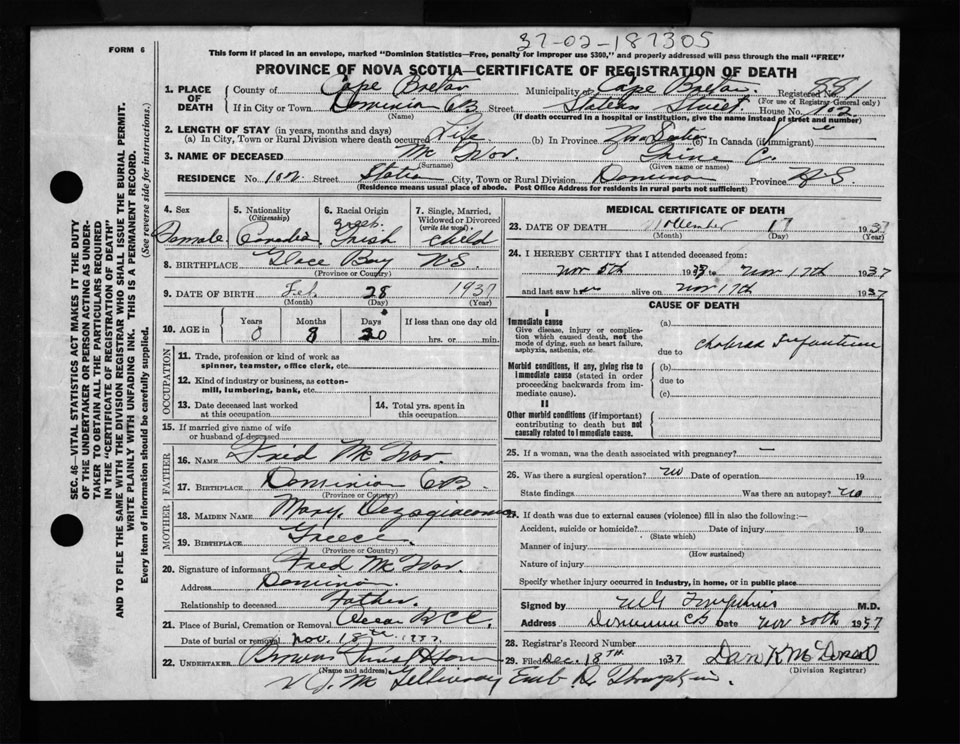 37-02-187305
FORM 6
This form if placed in an envelope, marked "Dominion Statistics—Free, penalty for improper use $300," and properly addressed will pass through the mail "FREE"
PROVINCE OF NOVA SCOTIA—CERTIFICATE OF REGISTRATION OF DEATH
1. PLACE OF DEATH County of Cape Breton Municipality of Cape Breton Registered No. 881
(For use of Registrar-General only)
If in City or Town Dominion CB Street Station Street House No. 102
(Name) (If death occurred in a hospital or institution, give the name instead of street and number)
2. LENGTH OF STAY (in years, months and days)
(a) In City, Town or Rural Division where death occurred Life (b) In Province Nova Scotia (c) In Canada (if immigrant)
3. NAME OF DECEASED Mc Ivor. C.
(Surname) (Given name or names)
RESIDENCE No. 102 Street Station City, Town or Rural Division Dominion Province N.S
(Residence means usual place of abode. Post Office Address for residents in rural parts not sufficient)
4. Sex Female
5. Nationality (Citizenship) Canadian
6. Racial Origin Irish
7. Single, Married, Widowed or Divorced (write the word) child
8. BIRTHPLACE Glace Bay N.S.
(Province or Country)
9. DATE OF BIRTH Feb. 28 1937
(Month) (Day) (Year)
10. AGE in Years Months Days If less than one day old
0 8 20 hrs. or min.
OCCUPATION
11. Trade, profession or kind of work as spinner, teamster, office clerk, etc.
12. Kind of industry or business, as cotton-mill, lumbering, bank, etc.
13. Date deceased last worked at this occupation
14. Total yrs. spent in this occupation
15. If married give name of wife or husband of deceased
FATHER
16. NAME Fred Mc Ivor.
17. BIRTHPLACE Dominion CB.
(Province or Country)
MOTHER
18. MAIDEN NAME Mary
19. BIRTHPLACE Greece
(Province or Country)
20. Signature of informant Fred Mc Ivor.
Address Dominion.
Relationship to deceased Father
21. Place of Burial, Cremation or Removal
Date of burial or removal Nov. 18th 1937
22. UNDERTAKER Browns
(Name and address)
MEDICAL CERTIFICATE OF DEATH
23. DATE OF DEATH November 17 1937
(Month) (Day) (Year)
24. I HEREBY CERTIFY that I attended deceased from:
Nov 5th 1937 to Nov 17th 1937
and last saw her alive on Nov 17th 1937
CAUSE OF DEATH
I
Immediate cause
Give disease, injury or complication which caused death, not the mode of dying, such as heart failure, asphyxia, asthenia, etc.
(a)
due to Cholera Infantum
Morbid conditions, if any, giving rise to immediate cause (stated in order proceeding backwards from immediate cause).
(b)
due to
(c)
II
Other morbid conditions (if important) contributing to death but not causally related to immediate cause.
25. If a woman, was the death associated with pregnancy? —
26. Was there a surgical operation? no Date of operation 19
State findings Was there an autopsy? no
27. If death was due to external causes (violence) fill in also the following:—
Accident, suicide or homicide? Date of injury 19
(State which)
Manner of injury
(How sustained)
Nature of injury
Specify whether injury occurred in industry, in home, or in public place
Signed by M.D.
Address Dominion CB Date Nov 30th 1937
28. Registrar's Record Number
29. Filed Dec. 18TH 1937 Dan K McDonald
(Division Registrar)
SEC. 46—VITAL STATISTICS ACT MAKES IT THE DUTY
OF THE UNDERTAKER OR PERSON ACTING AS UNDER-
TAKER TO OBTAIN ALL THE PARTICULARS REQUIRED
IN THE "CERTIFICATE OF REGISTRATION OF DEATH"
AND TO FILE THE SAME WITH THE DIVISION REGISTRAR WHO SHALL ISSUE THE BURIAL PERMIT.
WRITE PLAINLY WITH UNFADING INK. THIS IS A PERMANENT RECORD.
Every item of information should be carefully supplied. (See reverse side for instructions.)